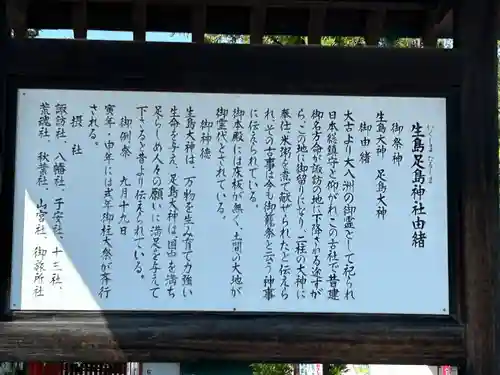 生島足島神社由緒
いくしまたるしま
御祭神
生島大神 足島大神
御由緒
太古より大八洲の御霊として祀られ
日本総鎮守と仰がれ、この古社で昔建
御名方命が諏訪の地に下降される途すが
ら、この地に御留りになり、二柱の大神に
奉仕し米粥を煮て献ぜられたと伝えら
れ、その古事は今も御籠祭と云う神事
に伝えられている。
御本殿には床板が無く、土間の大地が
御霊代とされている。
御神徳
生島大神は、万物を生み育て力強い
生命を与え、足島大神は、国中を満ち
足らしめ人々の願いに満足を与えて
下さると昔より伝えられている。
御例祭 九月十九日
寅年・申年には式年御柱大祭が斉行
される。
摂社
諏訪社、八幡社、子安社、十三社、
荒魂社、秋葉社、山宮社、御旅所社